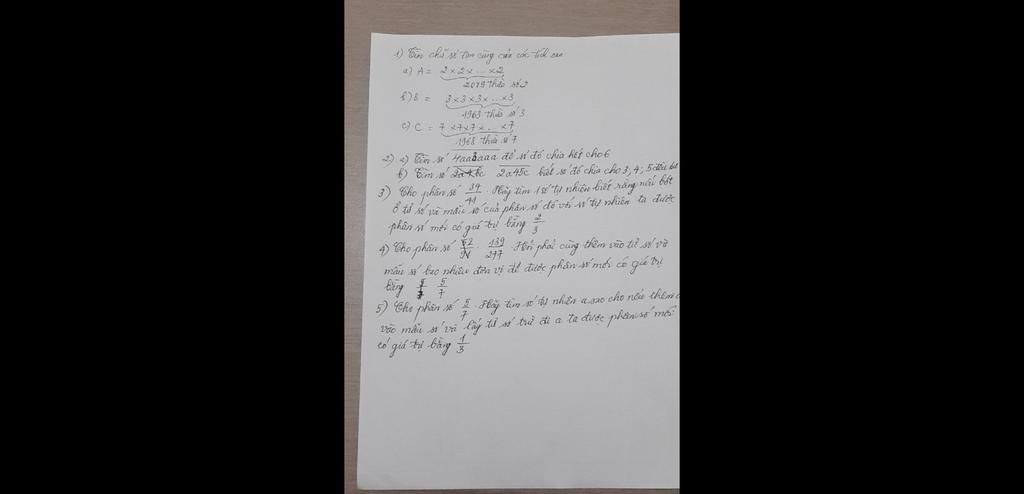 1) Tìm chữ số tận cùng của các tích sau:
a) A = 2 × 2 × ... × 2
2019 thừa số 2
b) B = 3 × 3 × 3 × ... × 3
1963 thừa số 3
c) C = 7 × 7 × 7 × ... × 7
1968 thừa số 7
2) a) Tìm số để số đó chia hết cho 6
b) Tìm số 2a45c biết số đó chia cho 3, 4, 5 đều
3) Cho phân số 34/41. Hãy tìm 1 số tự nhiên biết rằng nếu bớt
ở tử số và mẫu số của phân số đó với số tự nhiên ta được
phân số mới có giá trị bằng 2/3
4) Cho phân số 139/277. Hỏi phải cùng thêm vào tử số và
mẫu số bao nhiêu đơn vị để được phân số mới có giá trị
bằng 5/7
5) Cho phân số 5/7. Hãy tìm số tự nhiên a sao cho nếu thêm a
vào mẫu số và lấy tử số trừ đi a ta được phân số mới
có giá trị bằng 1/3